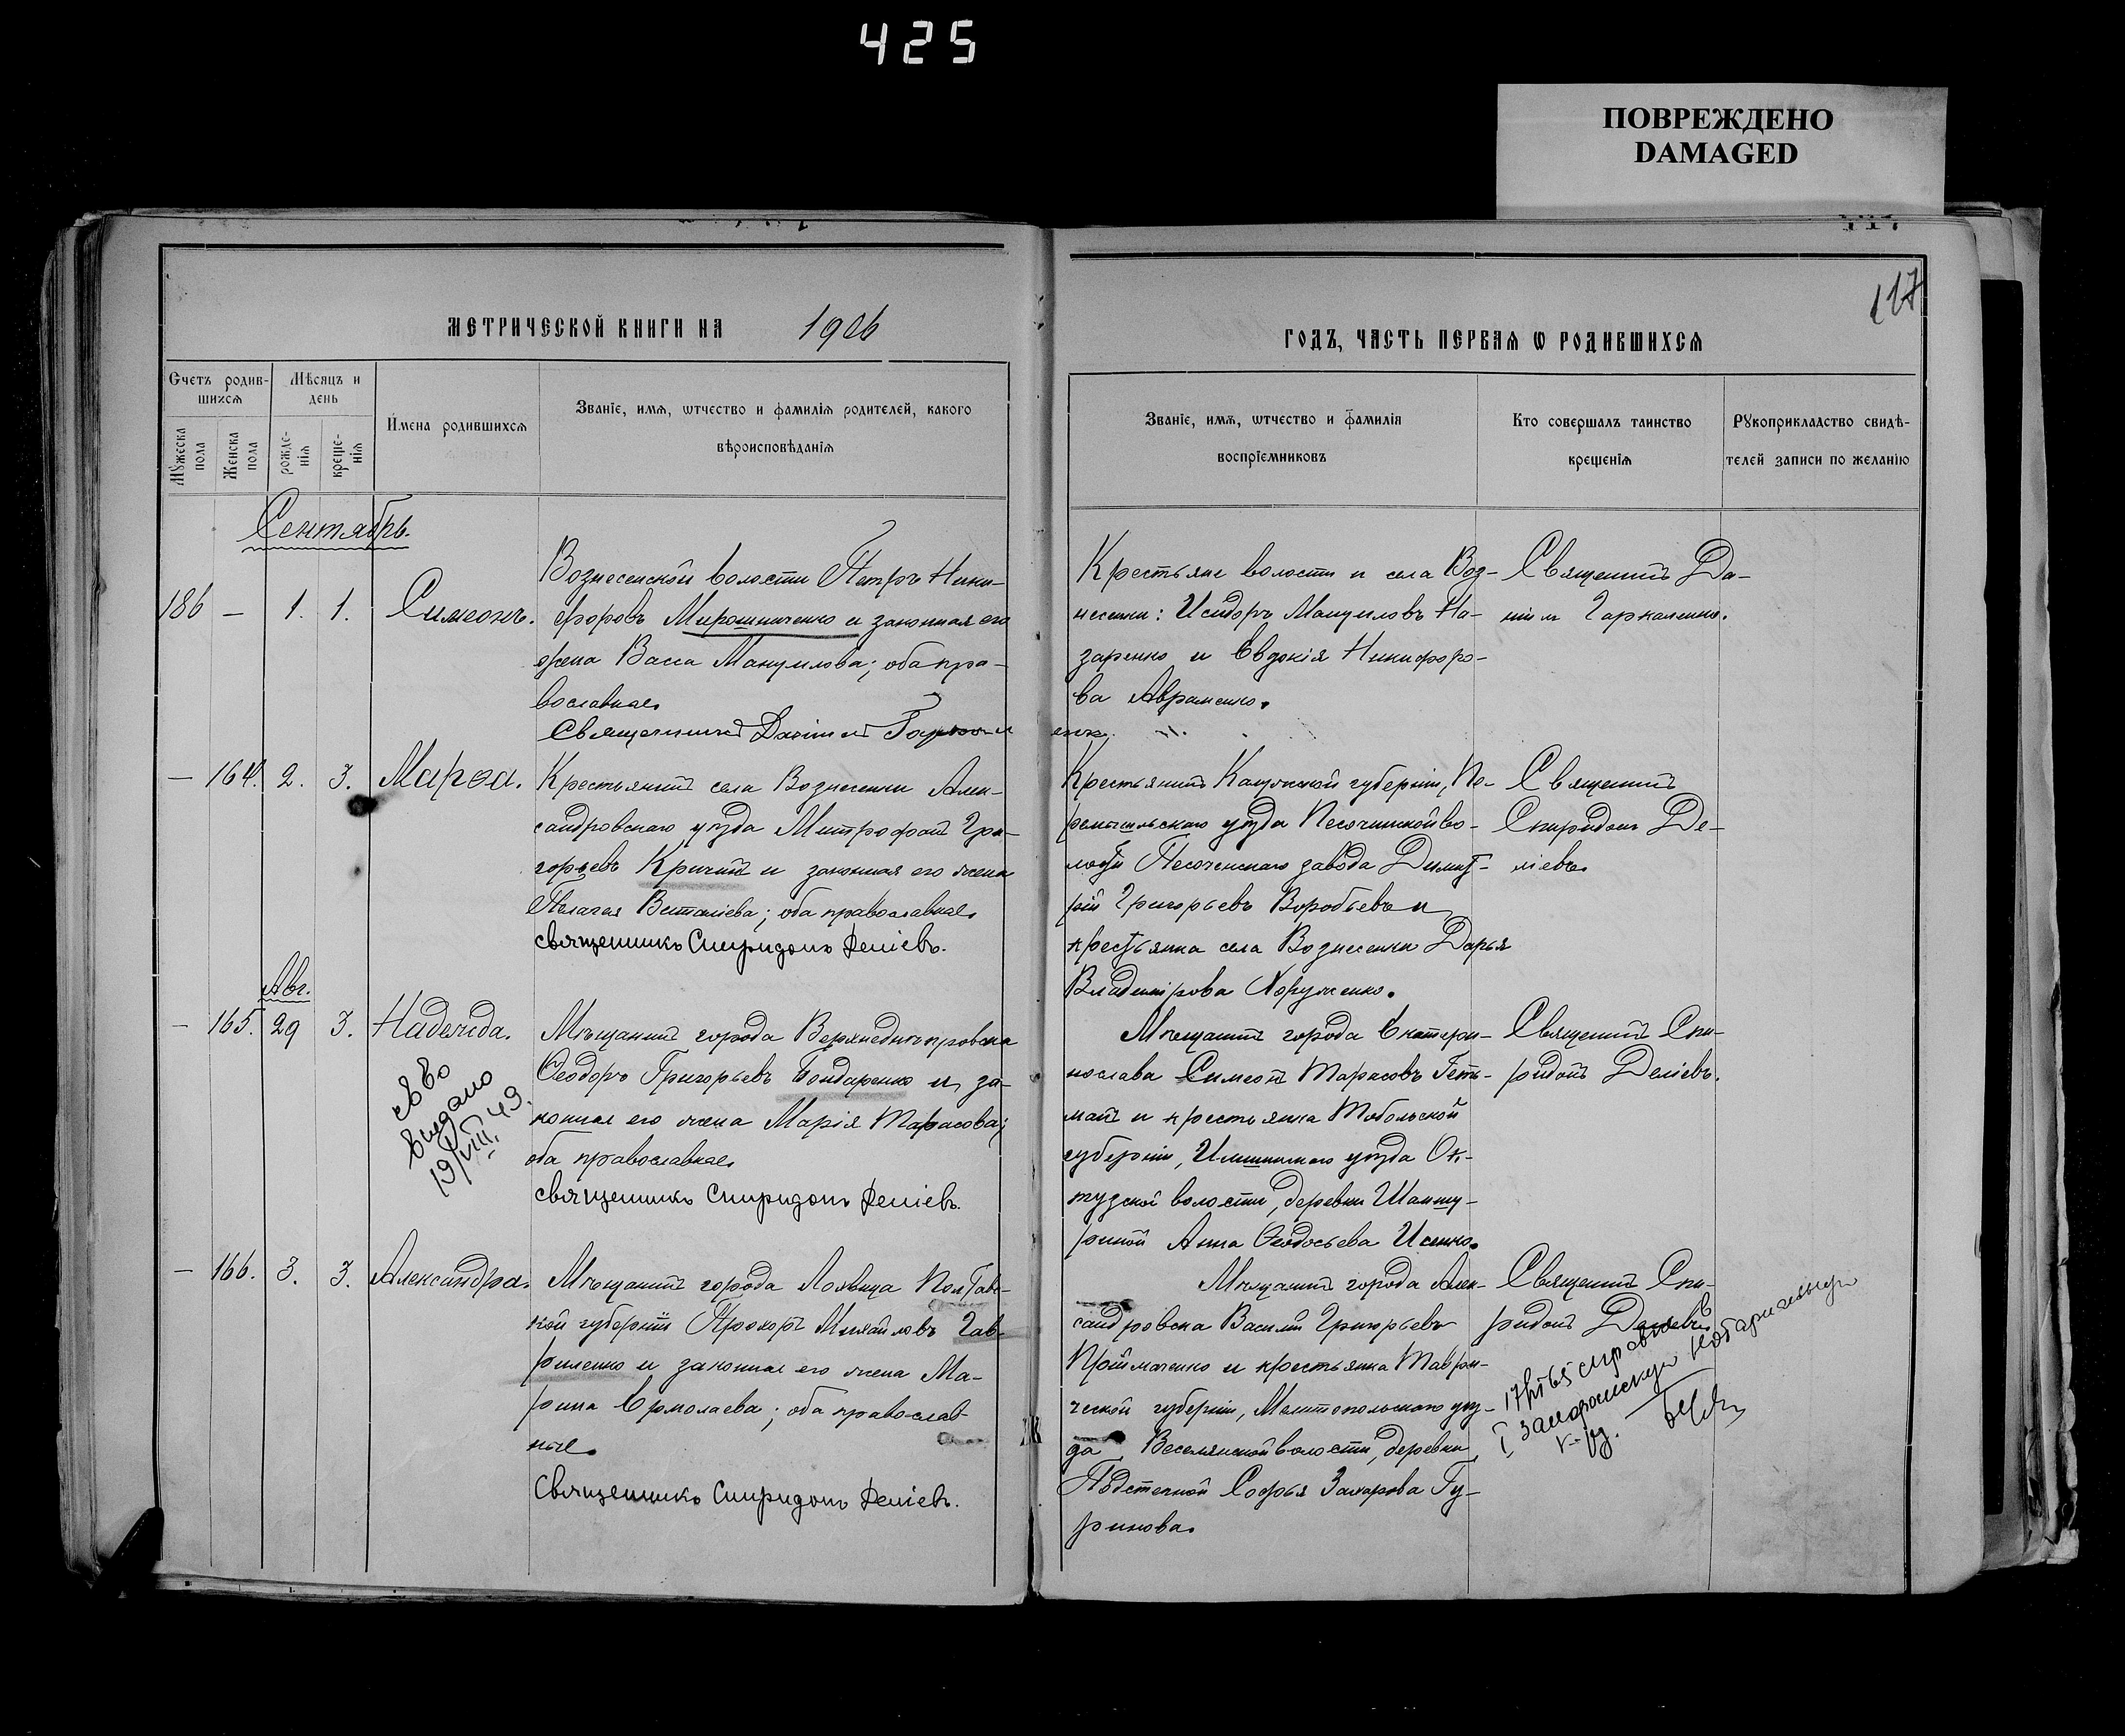 425
ПОВРЕЖДЕНО
DAMAGED
117
МЕТРИЧЕСКОЙ КНИГИ НА 1906
ГОДЪ, ЧАСТЬ ПЕРВАѦ Ѡ РОДИВШИХСѦ
Счетъ родив-
шихсѧ
Мужеска пола
Женска пола
Мѣсяцъ и
день
рожде-
нія
креще-
нія
Имена родившихсѧ
Званіе, имѧ, ѡтчество и фамиліѧ родителей, какого
вѣроисповѣданіѧ
Званіе, имѧ, ѡтчество и фамилія
воспріемниковъ
Кто совершалъ таинство
крещеніѧ
Рукоприкладство свидѣ-
телей записи по желанію
Сентябрь.
186 — 1. 1. Симеонъ.
Вознесенской волости Петръ Ники-
форовъ Мирошниченко и законная его
жена Васса Мануилова; оба пра-
вославные.
Священникъ Даніилъ Гаркаленко.
Крестьяне волости и села Воз-
несенки: Исидоръ Мануиловъ На-
заренко и Евдокія Никифоро-
ва Авраменко.
Священникъ Да-
ніилъ Гаркаленко.
— 164. 2. 3. Марѳа.
Крестьянинъ села Вознесенки Алек-
сандровскаго уѣзда Митрофанъ Гри-
горьевъ Кричунъ и законная его жена
Пелагея Виталіева; оба православные.
священникъ Спиридонъ Деліевъ.
Крестьянинъ Калужской губерніи, Пе-
ремышльскаго уѣзда Песочинской во-
лости Песоченскаго завода Димит-
рій Григорьевъ Воробьевъ и
крестьянка села Вознесенки Дарья
Владимірова Хоруженко.
Священникъ
Спиридонъ Де-
ліевъ.
Авг.
— 165. 29 3. Надежда.
св во
выдано
19/VIII.49.
Мѣщанинъ города Верхнеднѣпровска
Ѳеодоръ Григорьевъ Бондаренко и за-
конная его жена Марія Тарасова;
оба православные.
священникъ Спиридонъ Деліевъ.
Мѣщанинъ города Екатери-
нослава Симеонъ Тарасовъ Геть-
манъ и крестьянка Тобольской
губерніи, Ишимскаго уѣзда Ок-
тузской волости, деревни Шаншу-
риной Анна Ѳеодосьева Исенко.
Священникъ Спи-
ридонъ Деліевъ.
— 166. 3. 3. Александра.
Мѣщанинъ города Лохвица Полтавс-
кой губерніи Прохоръ Михайловъ Гав-
риленко и законная его жена Ма-
рина Ермолаева; оба православ-
ные.
Священникъ Спиридонъ Деліевъ.
Мѣщанинъ города Алек-
сандровска Василій Григорьевъ
Проймаченко и крестьянка Таври-
ческой губерніи, Мелитопольскаго уѣз-
да Веселянской волости, деревни
Подстепной Софья Захарова Гу-
ринова.
Священникъ Спи-
ридонъ Деліевъ.
справка в
I Запорожскую нотариальную
к-ру.